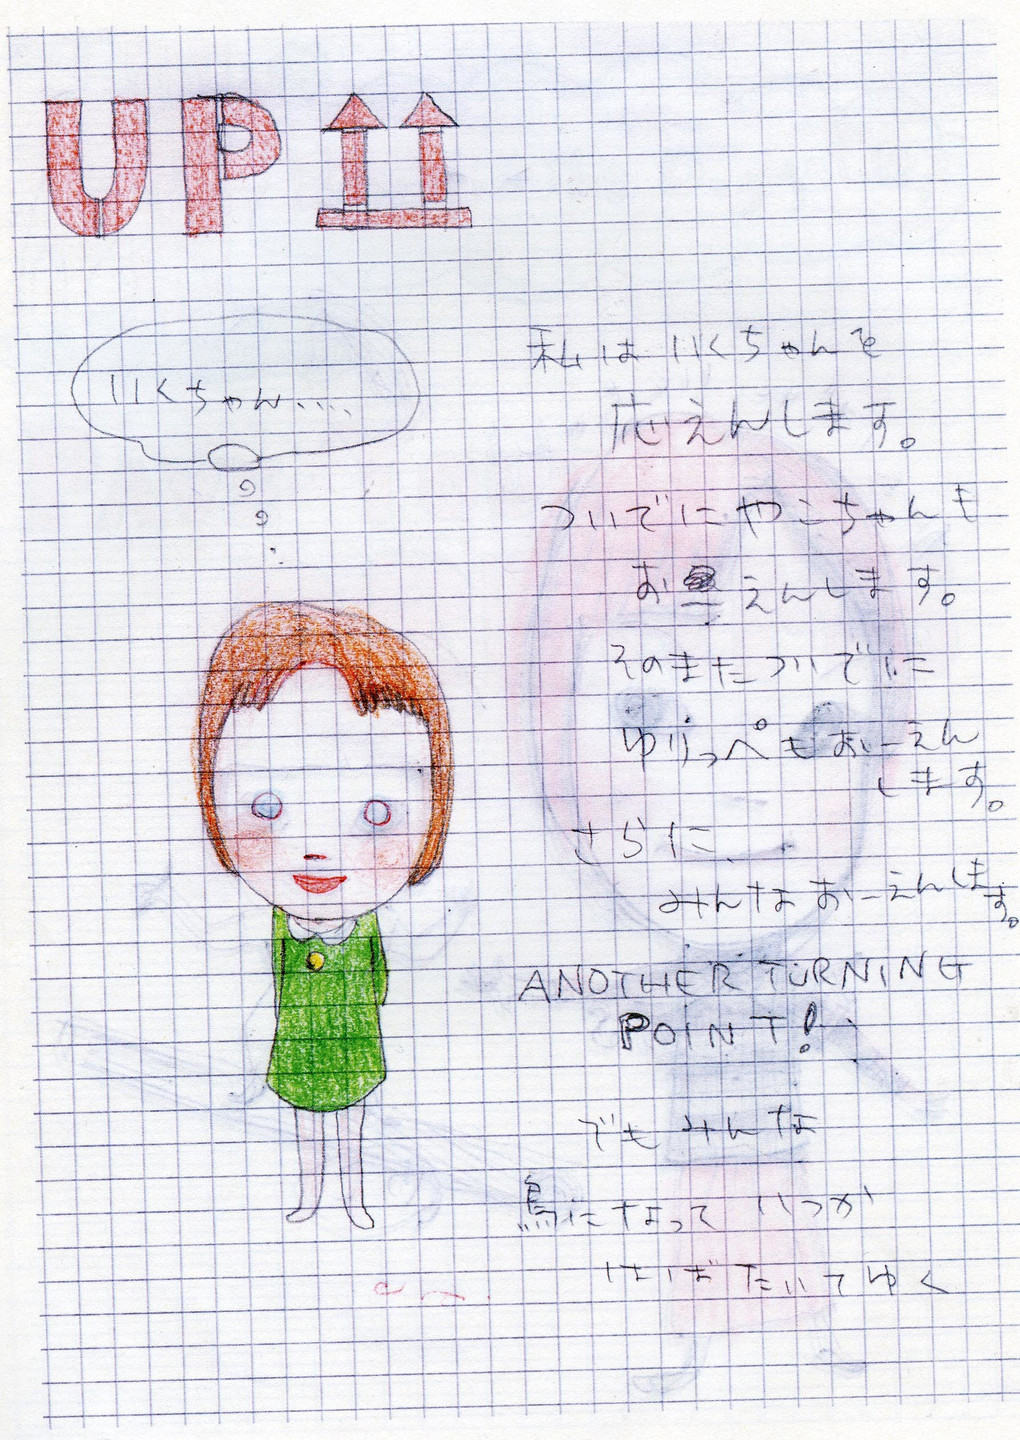 UP
いくちゃん....
私はいくちゃんを
応えんします。
ついでにやこちゃんも
おーえんします。
そのまたついでに
ゆりっぺもおーえん
します。
さらに、
みんなおーえんします。
ANOTHER TURNING
POINT!
でもみんな
鳥になっていつか
はばたいてゆく